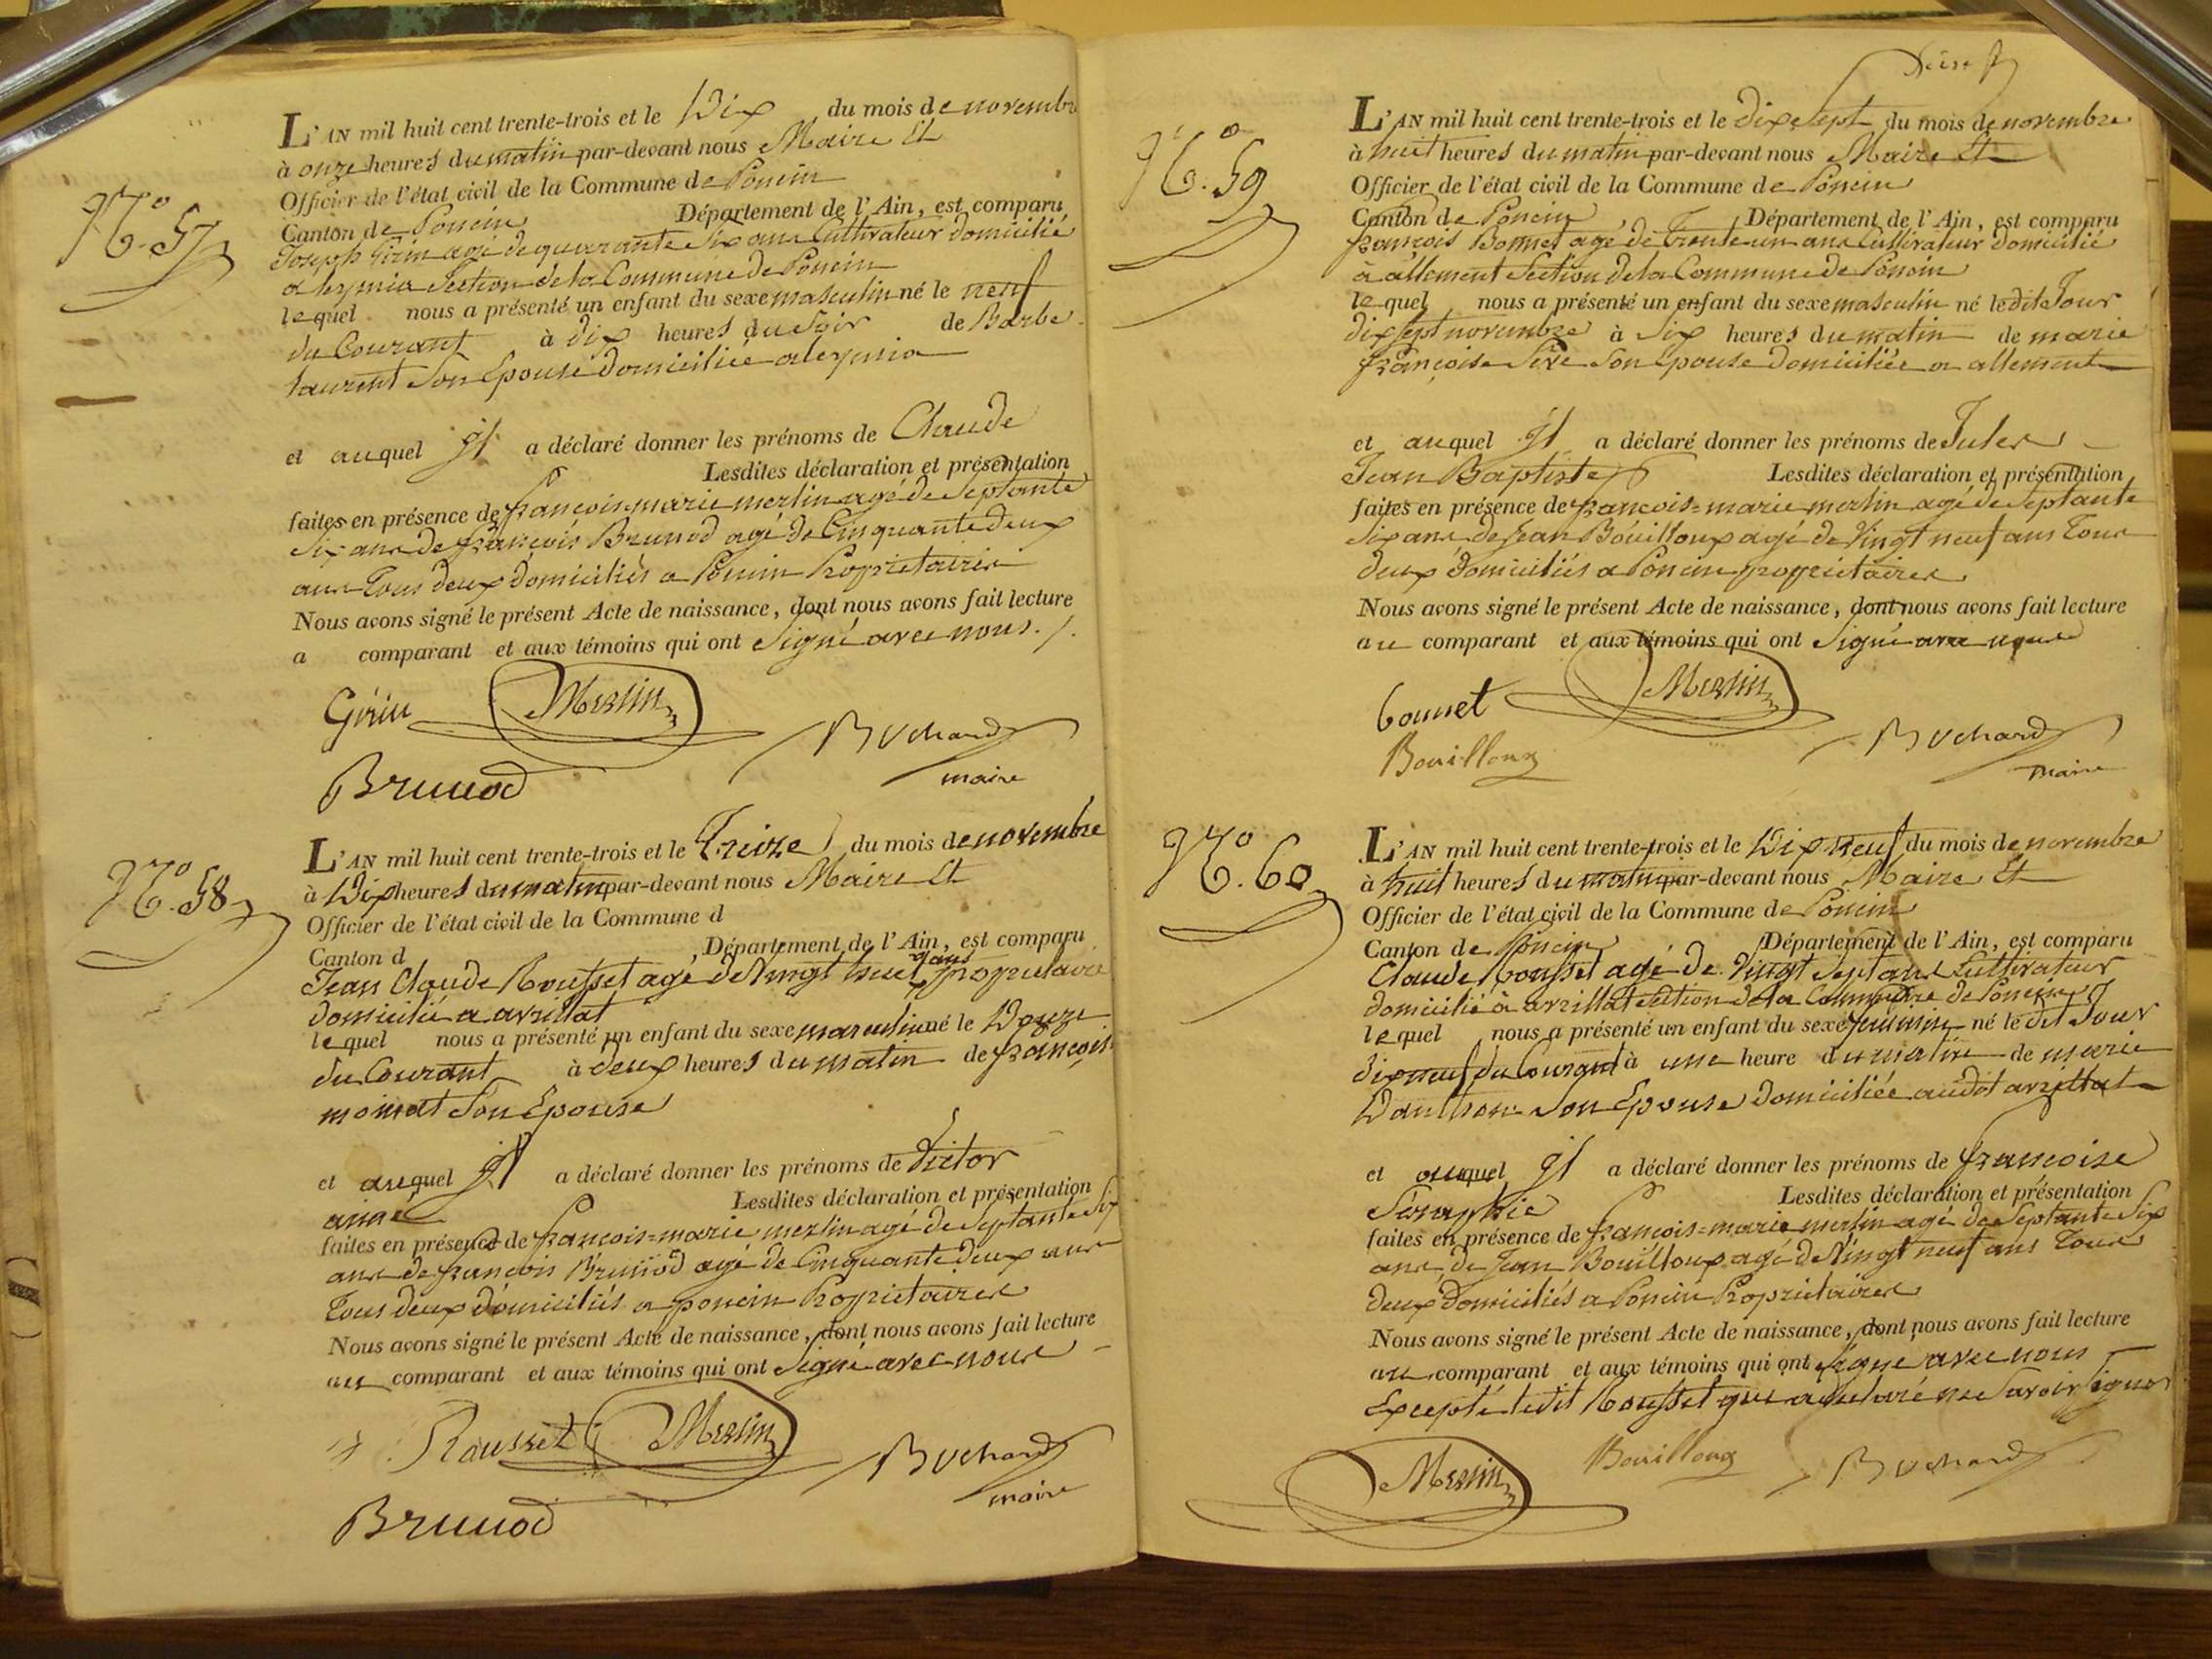 N.o 57
L'AN mil huit cent trente-trois et le Dix du mois de novembre
à onze heures du matin par-devant nous Maire Et
Officier de l'état civil de la Commune de Poncin
Canton de Poncin Département de l'Ain, est comparu
Joseph Girin agé de quarante Six ans Cultivateur domicilié
a leymia Section de la Commune de Poncin
lequel nous a présenté un enfant du sexe masculin né le neuf
du Courant à dix heures du Soir de Barbe
laurent Son Epouse domiciliée a leymia
et auquel Jl a déclaré donner les prénoms de Claude
Lesdites déclaration et présentation
faites en présence de françois=marie merlin agé de Septante
Six ans de françois Brunod agé de Cinquante deux
ans Tous deux domiciliés a Poncin Propriétaires
Nous avons signé le présent Acte de naissance, dont nous avons fait lecture
a comparant et aux témoins qui ont Signé avec nous ./.
Girin Merlin
Buchard
maire
Brunod
N.o 58
L'AN mil huit cent trente-trois et le Treize du mois de novembre
à Dix heures du matin par-devant nous Maire Et
Officier de l'état civil de la Commune d
Canton d , Département de l'Ain, est comparu
Jean Claude Rousset agé de Vingt huit ans propriétaire
domicilié a avrillat
lequel nous a présenté un enfant du sexe masculin né le Douze
du Courant à deux heures du matin de françoise
moinat Son Epouse
et auquel Jl a déclaré donner les prénoms de Victor
aimé
Lesdites déclaration et présentation
faites en présence de françois=marie merlin agé de Septante Six
ans de françois Brunod agé de Cinquante deux ans
Tous deux domiciliés a poncin Propriétaires
Nous avons signé le présent Acte de naissance, dont nous avons fait lecture
au comparant et aux témoins qui ont Signé avec nous
Rousset Merlin
Buchard
maire
Brunod
N.o 59
L'AN mil huit cent trente-trois et le Dix Sept du mois de novembre
à huit heures du matin par-devant nous Maire Et
Officier de l'état civil de la Commune de Poncin
Canton de Poncin Département de l'Ain, est comparu
françois Bonnet agé de Trente un ans Cultivateur domicilié
à allement Section de la Commune de Poncin
lequel nous a présenté un enfant du sexe masculin né le dit Jour
dix Sept novembre à Six heures du matin de marie
françoise Sève Son Epouse domiciliée a allement
et auquel Jl a déclaré donner les prénoms de Jules
Jean Baptiste Lesdites déclaration et présentation
faites en présence de françois=marie merlin agé de Septante
Six ans de Jean Bouilloux agé de Vingt neuf ans Tous
deux domiciliés a Poncin propriétaires
Nous avons signé le présent Acte de naissance, dont nous avons fait lecture
au comparant et aux témoins qui ont Signé avec nous
bonnet Merlin
Buchard
maire
Bouilloux
N.o 60
L'AN mil huit cent trente-trois et le Dix neuf du mois de novembre
à huit heures du matin par-devant nous Maire Et
Officier de l'état civil de la Commune de Poncin
Canton de Poncin Département de l'Ain, est comparu
Claude Rousset agé de Vingt Sept ans Cultivateur
domicilié à avrillat Section de la Commune de Poncin
lequel nous a présenté un enfant du sexe féminin né le dit Jour
dix neuf du Courant à une heure du matin de marie
Son Epouse domiciliée audit avrillat
et auquel Jl a déclaré donner les prénoms de françoise
Séraphie Lesdites déclaration et présentation
faites en présence de françois=marie merlin agé de Septante Six
ans, de Jean Bouilloux agé de Vingt neuf ans Tous
deux domiciliés a Poncin Propriétaires
Nous avons signé le présent Acte de naissance, dont nous avons fait lecture
au comparant et aux témoins qui ont Signé avec nous
Excepté ledit Rousset qui a déclaré ne Savoir Signer
Merlin Bouilloux Buchard